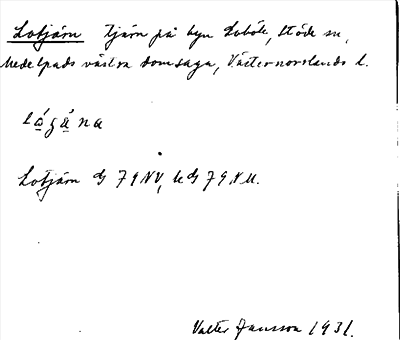 Lotjärn tjärn på byn Lobole, Stöde sn,
Medelpads västra domsaga, Västernorrlands l.
Lotjärn G 79 NV, G 79 NV.
Valter Jansson 1931.